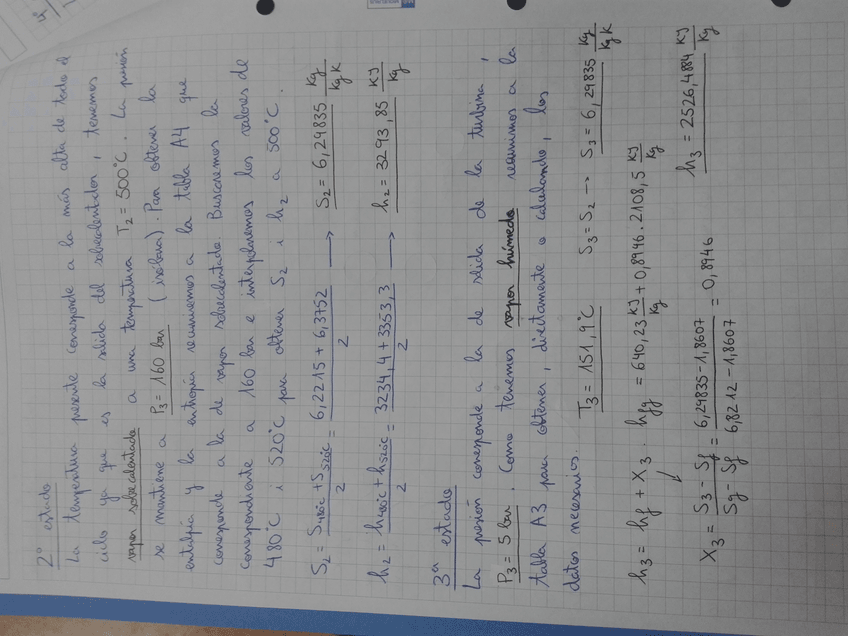 2º estado
La temperatura presente corresponde a la más alta de todo el
ciclo ya que es la salida del sobrecalentador, tenemos
vapor sobrecalentado a una temperatura T2 = 500°C. La presión
se mantiene a P3 = 160 bar (isobara). Para obtener la
entalpía y la entropía recurriremos a la tabla A4 que
corresponde a la de vapor sobrecalentado. Buscaremos la
correspondiente a 160 bar e interpolaremos los valores de
480°C i 520°C para obtener S2 i h2 a 500°C.
S2 = (S480°C + S520°C)/2 = (6,2215 + 6,3752)/2 → S2 = 6,29835 Kg/Kg K
h2 = (h480°C + h520°C)/2 = (3234,4 + 3353,3)/2 → h2 = 3293,85 KJ/Kg
3ª estado
La presión corresponde a la de salida de la turbina,
P3 = 5 bar. Como tenemos vapor húmedo recurrimos a la
tabla A3 para obtener, directamente o calculando, los
datos necesarios. T3 = 151,9°C S3 = S2 → S3 = 6,29835 Kg/Kg K
h3 = hf + X3 · hfg = 640,23 KJ/Kg + 0,8946 · 2108,5 KJ/Kg
h3 = 2526,4884 KJ/Kg
X3 = (S3 - Sf)/(Sg - Sf) = (6,29835 - 1,8607)/(6,8212 - 1,8607) = 0,8946